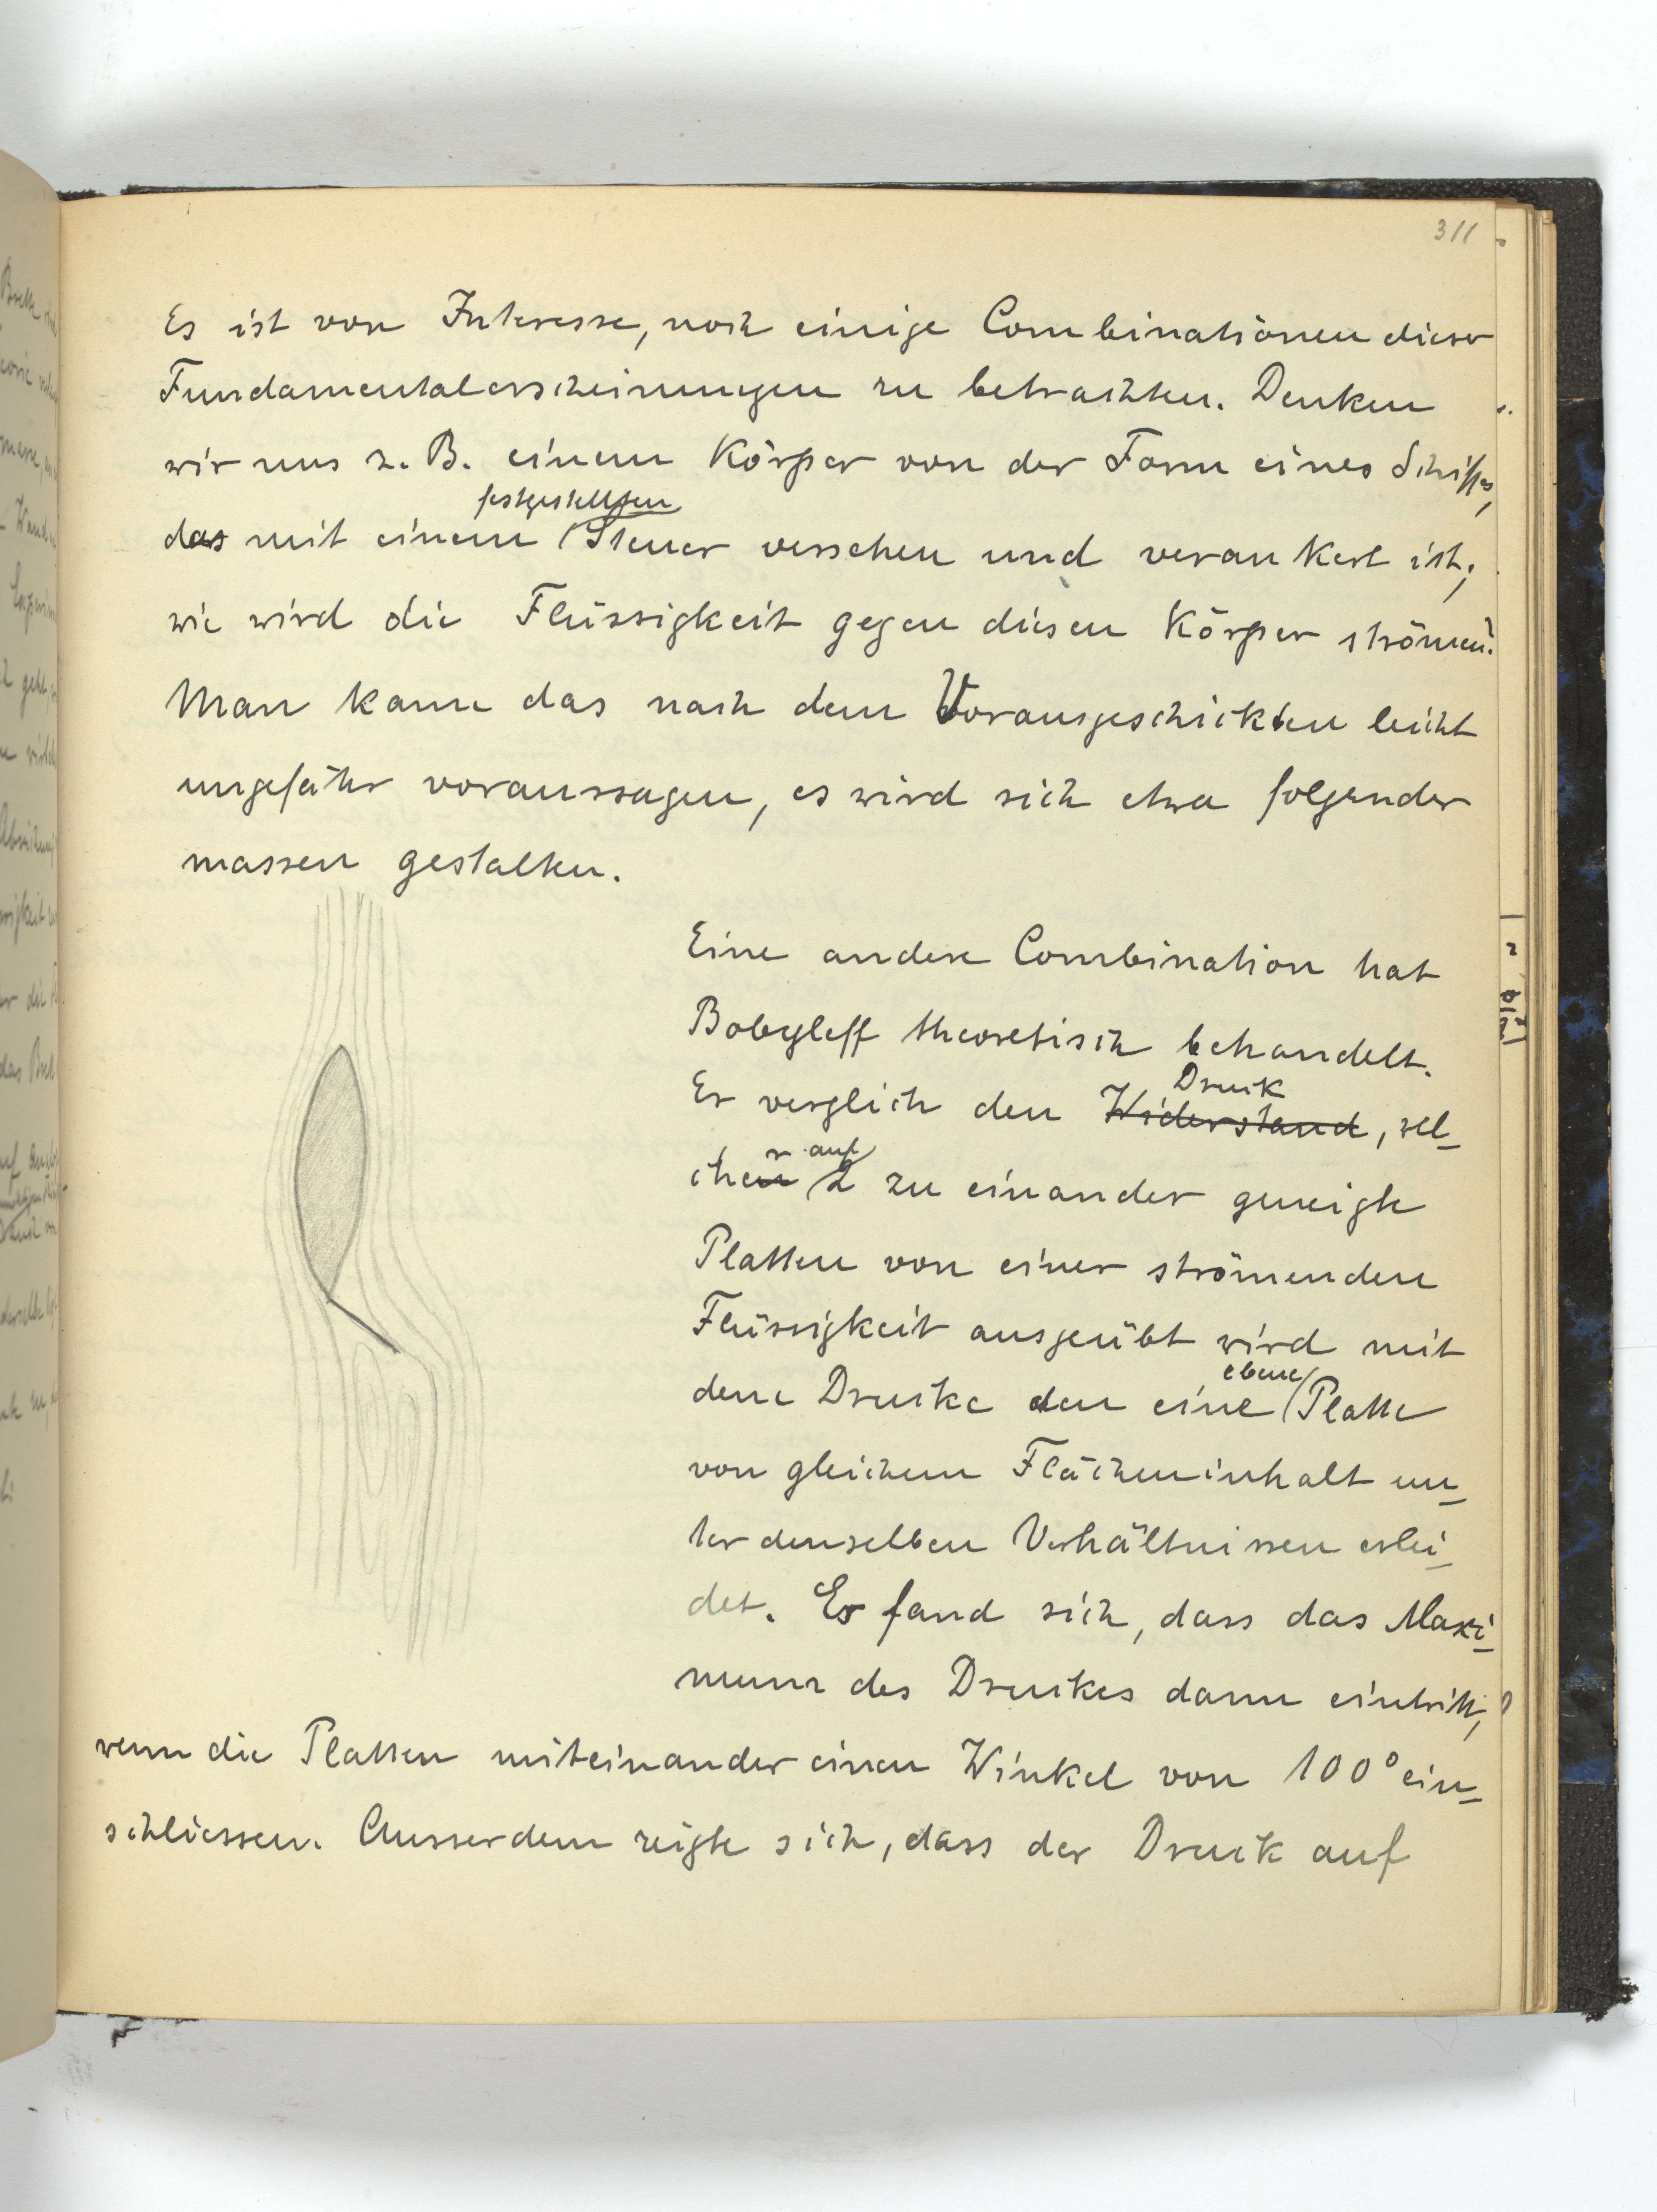 311
Es ist von Interesse, noch einige Combinationen dieser
Fundamentalerscheinungen zu betrachten. Denken
wir uns z. B. einem Körper von der Form eines Schiffes,
festgestellten
das mit einem Steuer versehen und verankert ist;
wie wird die Flüssigkeit gegen diesen Körper strömen?
Man kann das nach dem Vorausgeschickten leicht
ungefähr voraussagen, es wird sich etwa folgender
massen gestalten.
Eine andere Combination hat
Bobyleff theoretisch behandelt.
Druck
Er verglich den Widerstand, wel_
r auf
chen 2 zu einander geneigte
Platten von einer strömenden
Flüssigkeit ausgeübt wird mit
ebene
dem Drucke den eine Platte
von gleichem Flächeninhalt un_
ter denselben Verhältnissen erlei_
det. Es fand sich, dass das Maxi_
mum des Druckes dann eintritt,
wenn die Platten miteinander einen Winkel von 100° ein_
schliessen. Ausserdem zeigte sich, dass der Druck auf